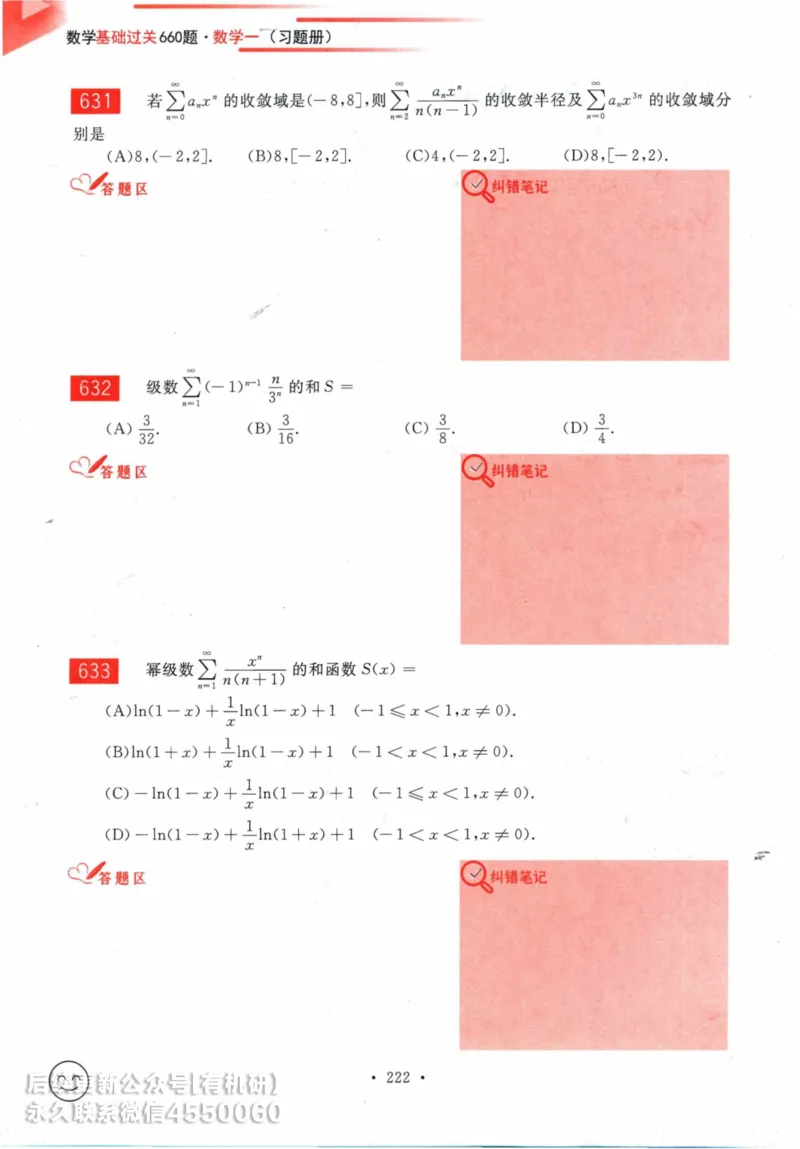 数学基础过关660题·数学一(习题册)
631 若∑_{n=0}^{∞} a_n x^n 的收敛域是(-8,8],则∑_{n=2}^{∞} \frac{a_n x^n}{n(n-1)} 的收敛半径及∑_{n=0}^{∞} a_n x^{3n} 的收敛域分
别是
(A)8,(-2,2]. (B)8,[-2,2]. (C)4,(-2,2]. (D)8,[-2,2).
答题区 纠错笔记
632 级数∑_{n=1}^{∞} (-1)^{n-1} \frac{n}{3^n} 的和 S =
(A) \frac{3}{32}. (B) \frac{3}{16}. (C) \frac{3}{8}. (D) \frac{3}{4}.
答题区 纠错笔记
633 幂级数∑_{n=1}^{∞} \frac{x^n}{n(n+1)} 的和函数 S(x) =
(A)ln(1-x)+\frac{1}{x}ln(1-x)+1 (-1≤x<1,x≠0).
(B)ln(1+x)+\frac{1}{x}ln(1-x)+1 (-1<x<1,x≠0).
(C)-ln(1-x)+\frac{1}{x}ln(1-x)+1 (-1≤x<1,x≠0).
(D)-ln(1-x)+\frac{1}{x}ln(1+x)+1 (-1<x<1,x≠0).
答题区 纠错笔记
· 222 ·
后续更新公众号[有机研]
永久联系微信4550060